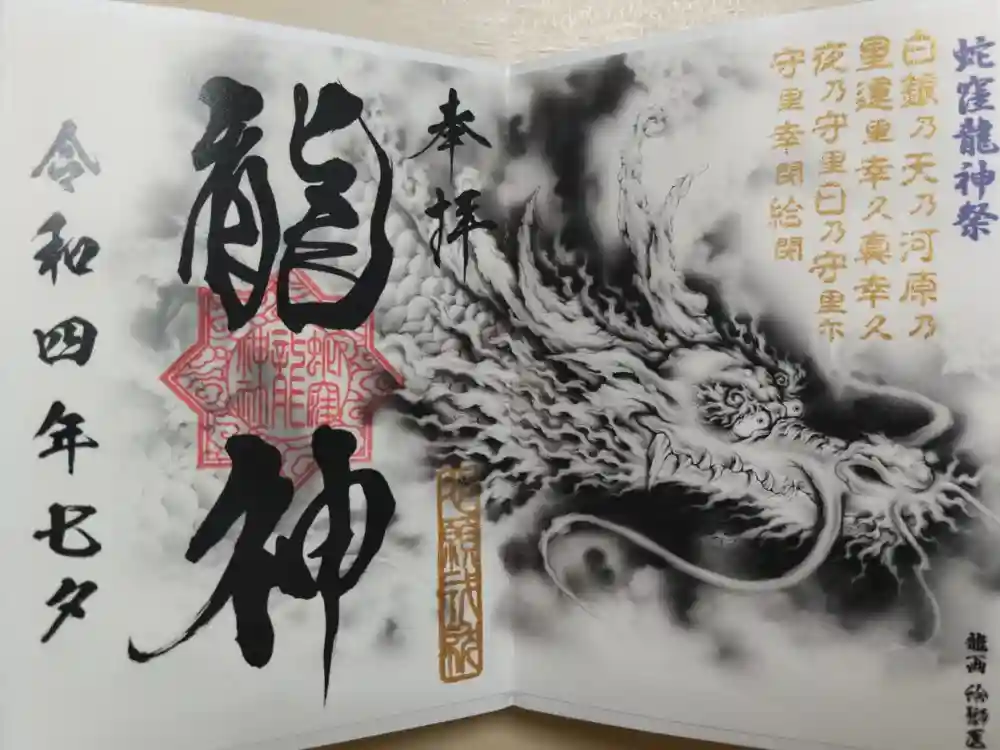 蛇窪龍神祭
白銀乃天乃河原乃
星運里幸久真幸久
夜乃守里日乃守里尓
守里幸閇給閇
奉拝
龍神
蛇窪龍神社
令和四年七夕